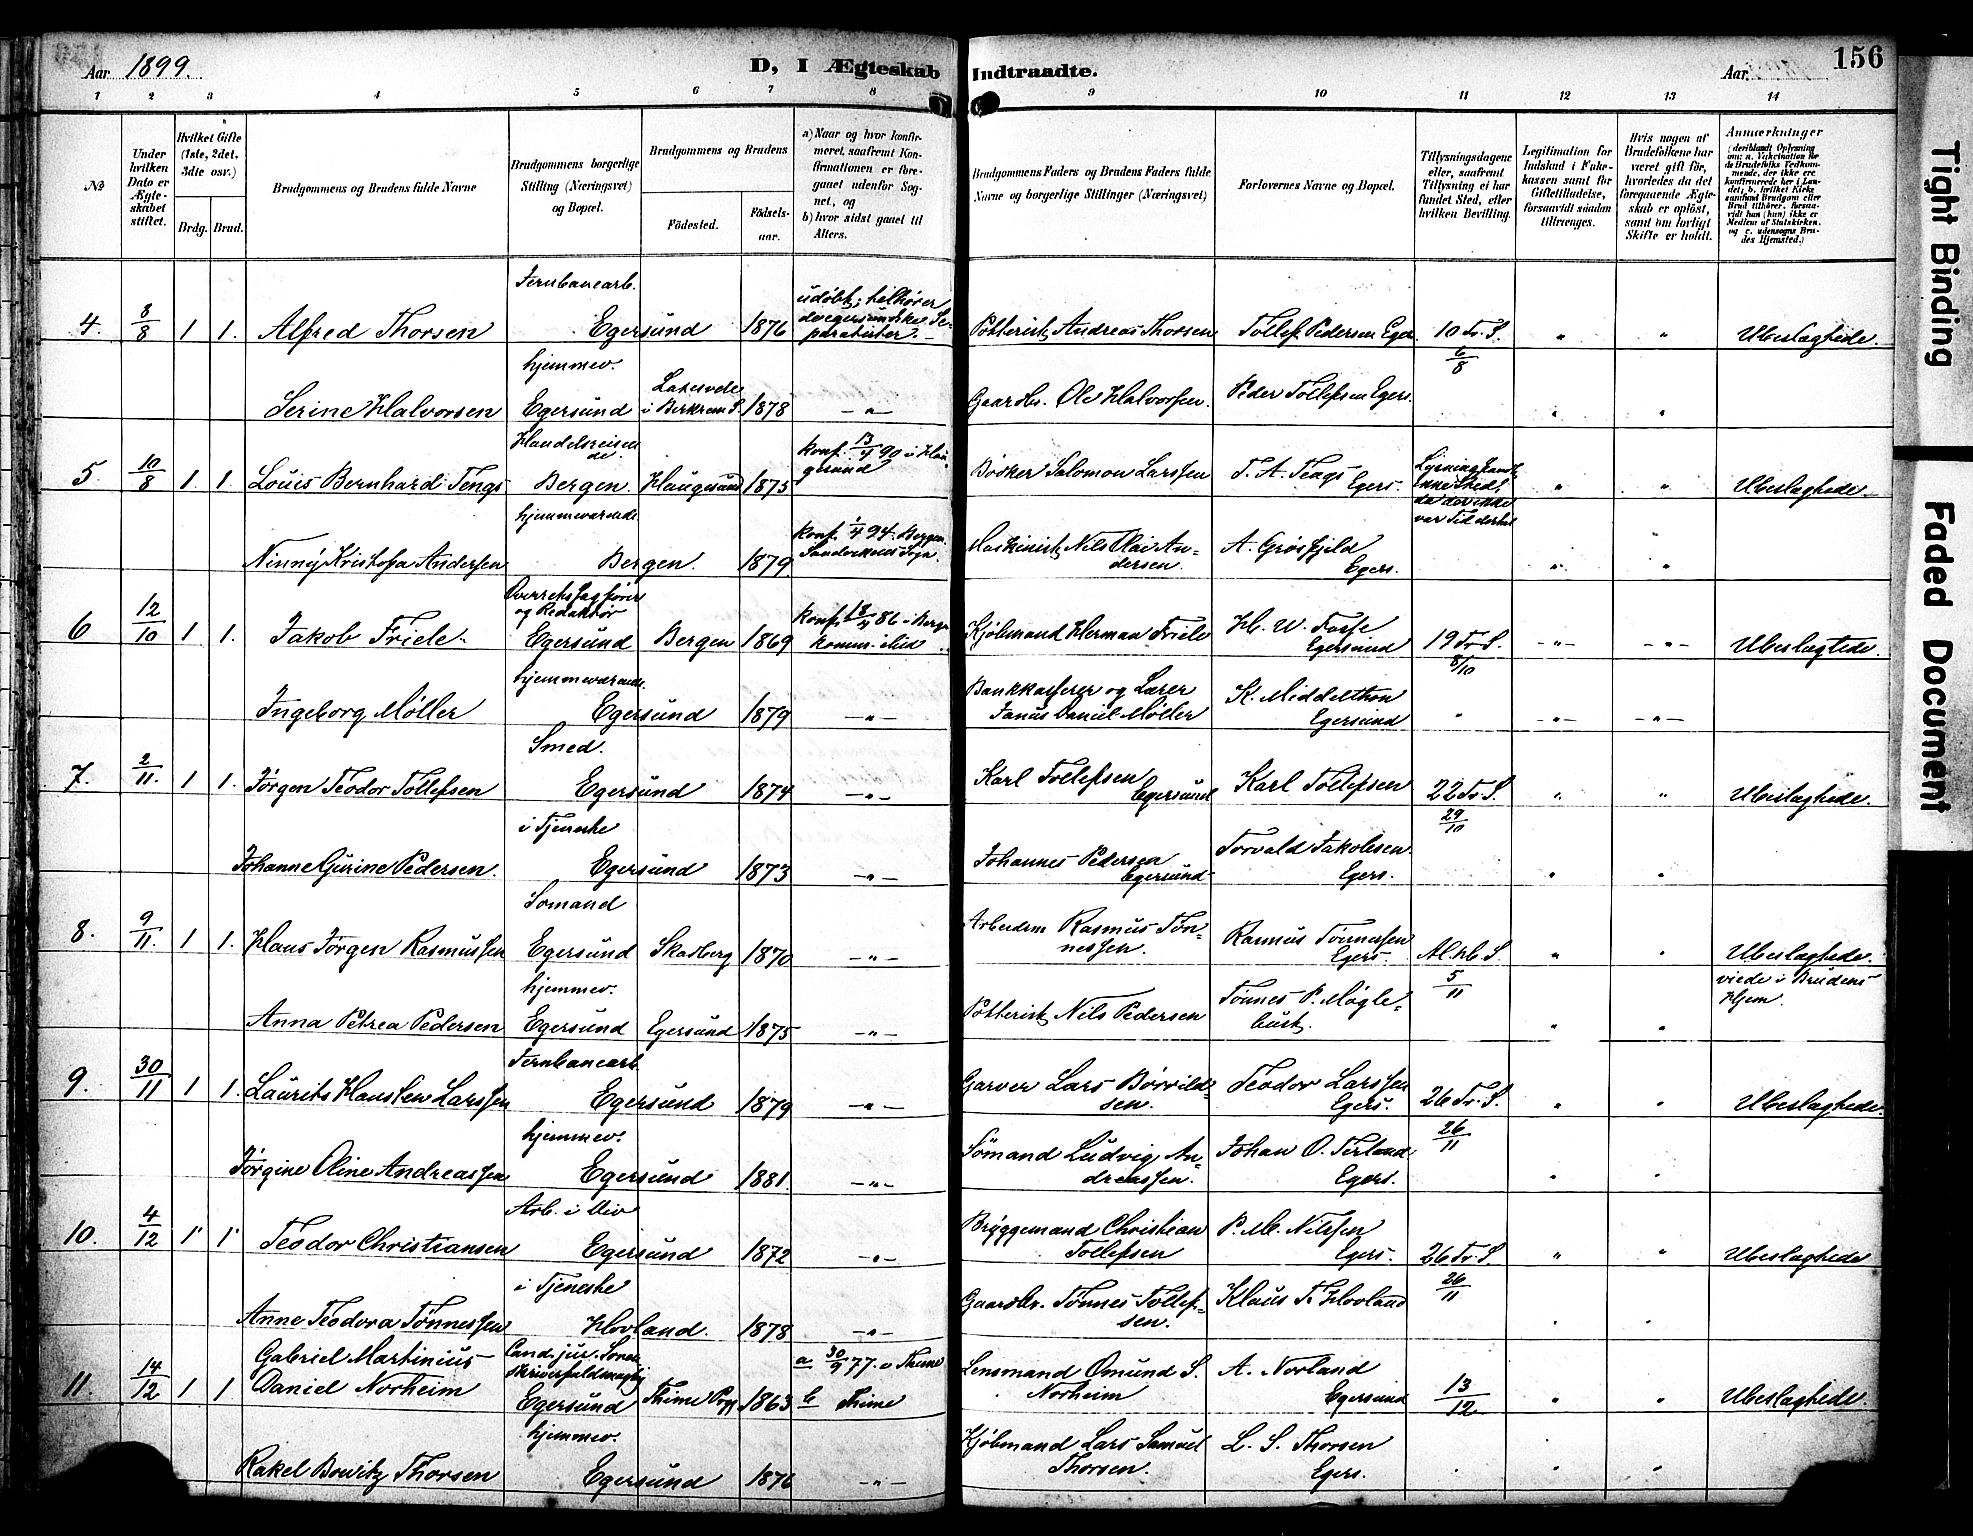 Aar 1899.
D, I Ægteskab Indtraadte.
Aar
156
1 2 3 4 5 6 7 8 9 10 11 12 13 14
No
Under hvilken Dato er Ægteskabet stiftet.
Hvilket Gifte (1ste, 2det, 3dte osv.)
Brdg. Brud.
Brudgommens og Brudens fulde Navne
Brudgommens borgerlige Stilling (Næringsvei) og Bopæl.
Brudgommens og Brudens
Fødested.
Fødselsaar.
a) Naar og hvor konfirmeret, saafremt Konfirmationen er foregaaet udenfor Sognet, og
b) hvor sidst gaaet til Alters.
Brudgommens Faders og Brudens Faders fulde Navne og borgerlige Stillinger (Næringsvei)
Forlovernes Navne og Bopæl.
Tillysningsdagene eller, saafremt Tillysning ei har fundet Sted, efter hvilken Bevilling.
Legitimation for Indskud i Enkekassen samt for Giftetilladelse, forsaavidt saadan tiltrænges.
Hvis nogen af Brudefolkene har været gift før, hvorledes da det foregaaende Ægteskab er opløst, samt om lovligt Skifte er holdt.
Anmærkninger
4. 8/8 1 1. Alfred Thorsen Jernbanearb. Egersund 1876 udøbt; tilhører de egersundske Separatister. Potterist. Andreas Thorsen Tollef Pedersen Eger. 10 Tr. S. 6/8 " " Ubeslægtede.
Serine Halvorsen hjemmev. Egersund i Birkrem S. 1878 -"- Gaardbr. Ole Halvorsen. Peder Tollefsen Egers. " "
5. 10/8 1. 1. Louis Bernhard Tengs Handelsreisende Bergen. Haugesund 1875 konf. 13/4 90 i Haugesund Bødker Salomon Larssen T. A. Teags Egers. " " Ubeslægtede.
Ninny Kristofa Andersen hjemmeværende. Bergen. 1879. konf. 1/4 94. Bergen Maskinist. Nils Olai Andersen. A. Grøsfjeld Egers. " "
6 12/10 1 1. Jakob Friele. Overretssagfører og Redaktør Egersund Bergen 1869 Kjøbmand Herman Friele Egersund 19 Tr. S. 8/10 -"- -"- Ubeslægtede.
Ingeborg Møller hjemmeværende. Egersund 1879 -"- Bankkasserer og Lærer Janus Daniel Møller K. Middelthon Egersund " -"- -"-
7. 2/11. 1 1. Jørgen Teodor Tollefsen Smed. Egersund 1874 -"- Karl Tollefsen Egersund Karl Tollefsen 22 Tr. S. 29/10 " " Ubeslægtede.
Johanne Gurine Pedersen. i Tjeneste Egersund 1873 -"- Johannes Pedersen Egersund Torvald Jakobsen. Egers. " "
8. 9/11. 1 1. Hans Jørgen Rasmussen Sømand Egersund Skadberg 1870 -"- Arbeidsm Rasmus Tønnessen. Rasmus Tønnessen Egers. Al. H. S. 5/11 " " Ubeslægtede. viede i Brudens Hjem.
Anna Petrea Pedersen hjemmev. Egersund Egersund 1875 -"- Potterist. Nils Pedersen Tønnes P. Møglebust. " "
9. 30/11 1 1. Laurits Hansten Larssen Jernbanearb. Egersund 1879 -"- Garver Lars Bøvildsen. Teodor Larssen Egers. 26 Tr. S. 26/11 " " Ubeslægtede.
Jørgine Oline Andreassen hjemmev. Egersund 1881. -"- Sømand Ludvig Andreassen. Johan O. Terland Egers. " "
10. 4/12 1 1 Teodor Christiansen Egersund 1872 -"- Bryggemand Christian Tollefsen P. M. Nilssen Egers. 26 Tr. S. 26/11 " " Ubeslægtede
Anne Teodora Tønnessen i Tjeneste Hovland. 1878 -"- Gaardbr. Tønnes Tollefsen. Klaus T. Hovland " "
11. 14/12 1 1 Gabriel Martinius Daniel Norheim Cand. jur. Sorenskriverfuldmægtig Egersund Thime 1863 a 30/9 77. i Thime b Thime Lensmand Omund S. Norheim A. Norland Egersund 13/12 " " Ubeslægtede.
Rakel Bowitz Thorsen hjemmev. Egersund 1876 -"- Kjøbmand Lars Samuel Thorsen. L. S. Thorsen Egers. " "
Tight Binding
Faded Document